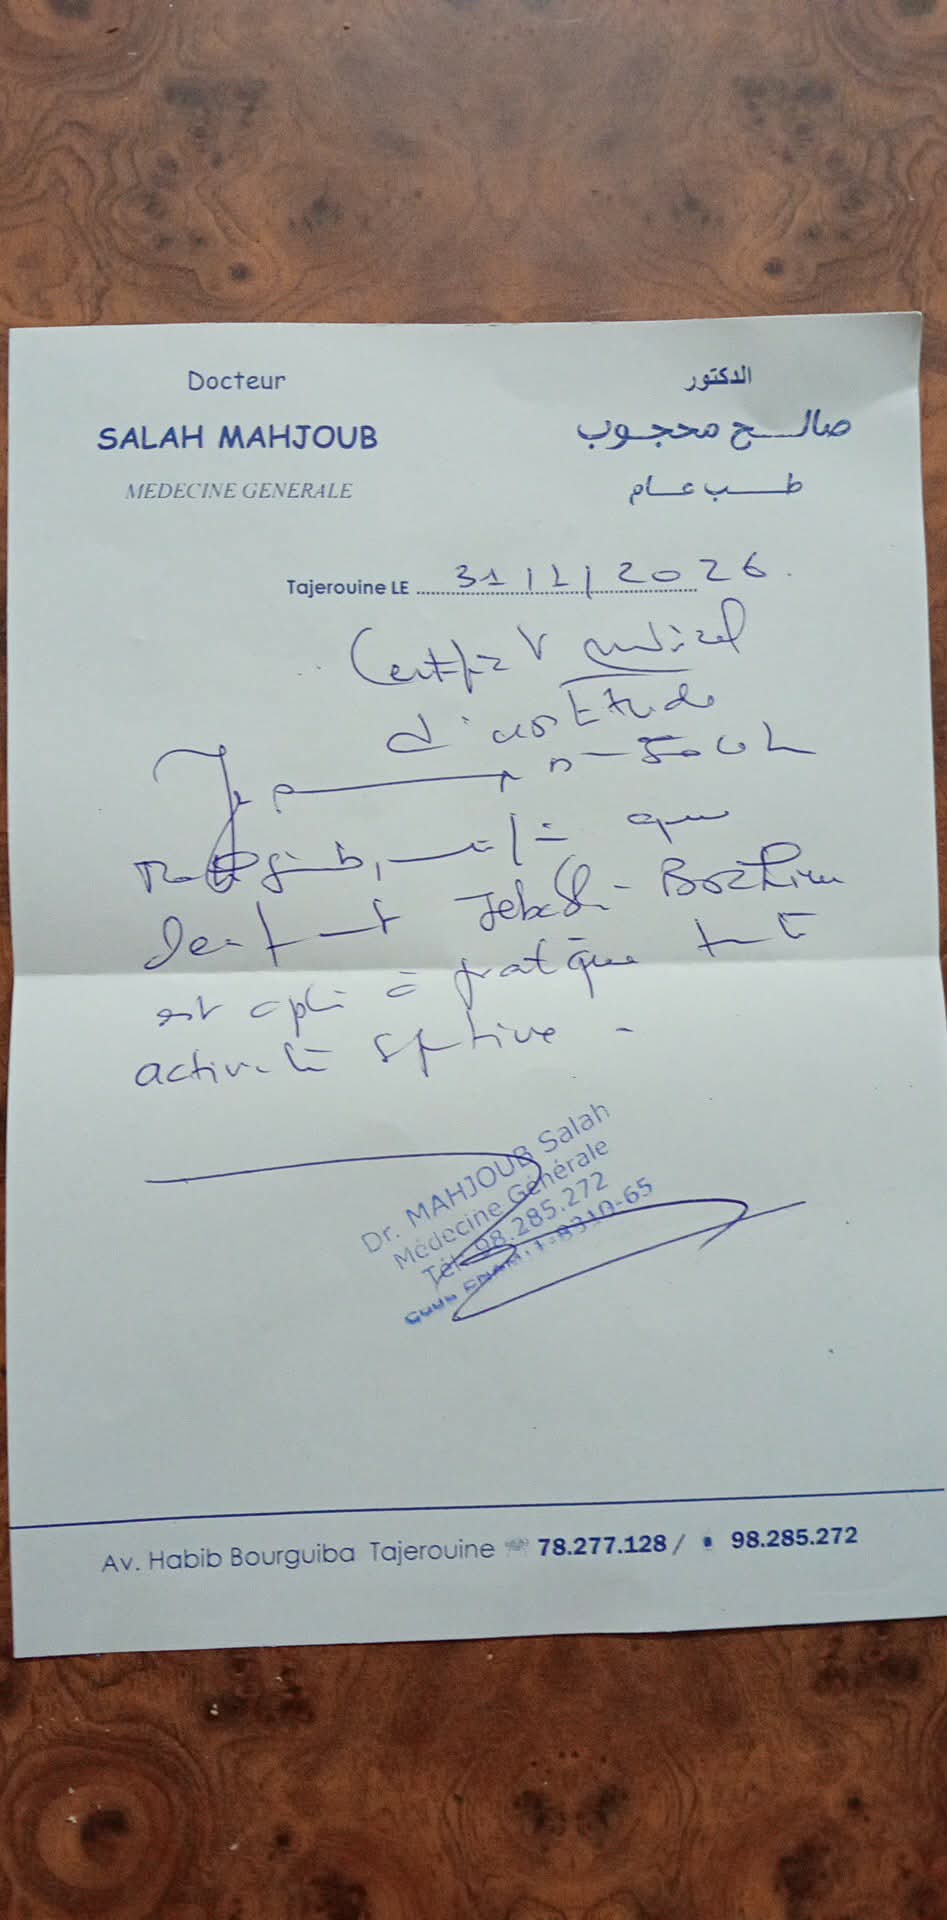 Docteur
SALAH MAHJOUB
MEDECINE GENERALE
الدكتور
صالح محجوب
طب عام
Tajerouine LE 31/1/2026
Certificat médical
d'aptitude
Je Salah
Mahjoub, que
l'enfant Brahim
est apte à pratiquer toute
activité sportive
Dr. MAHJOUB Salah
Médecine Générale
Tél: 98.285.272
Av. Habib Bourguiba Tajerouine 78.277.128 / 98.285.272